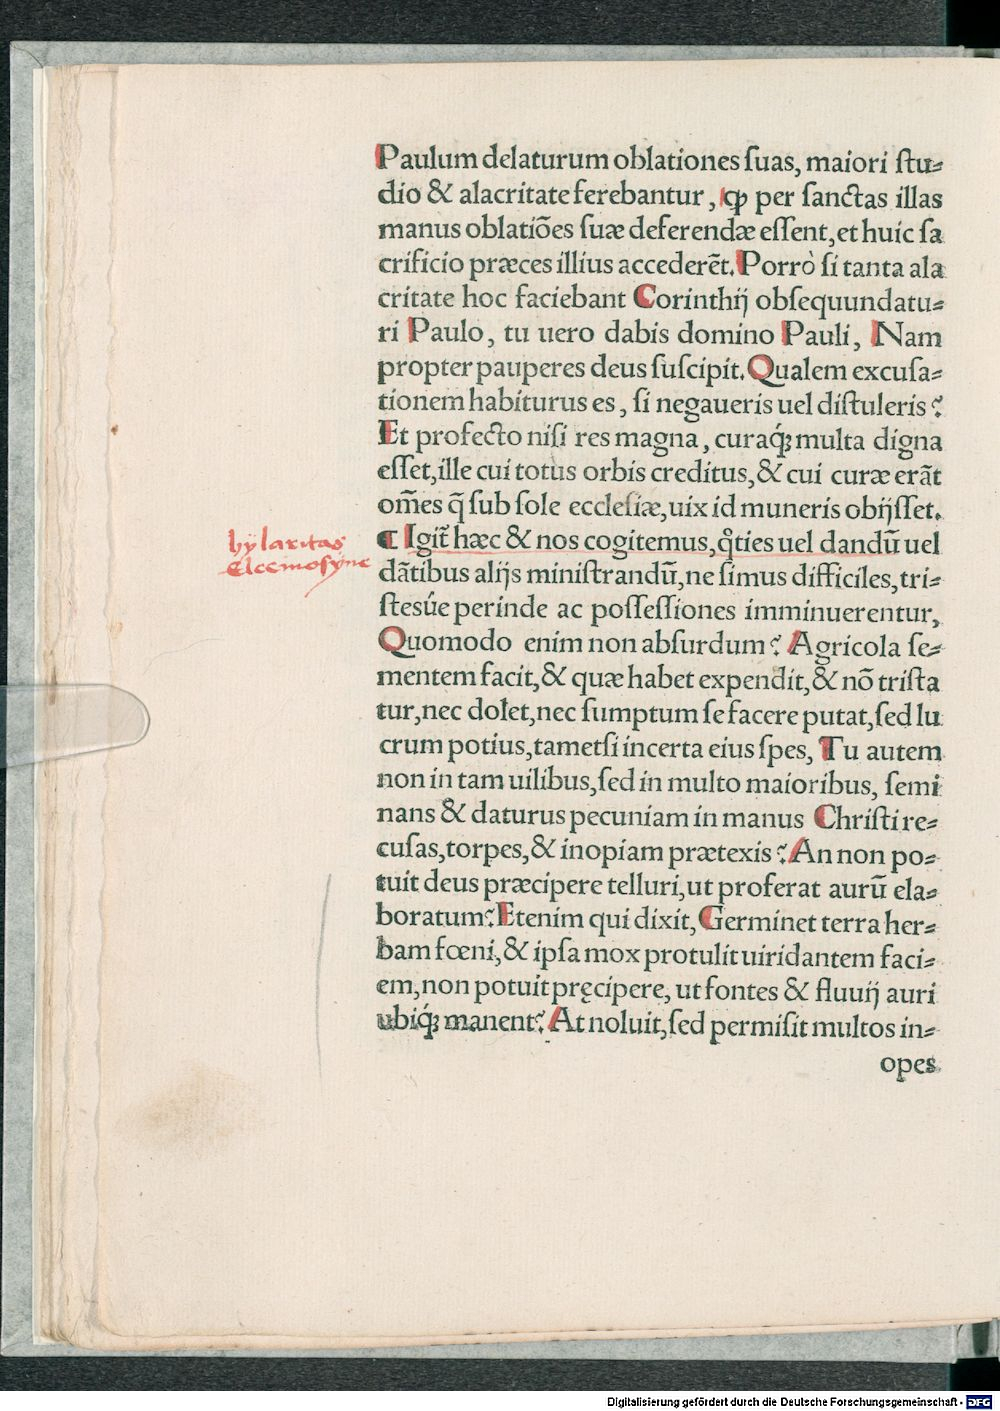 Paulum delaturum oblationes ſuas, maiori ſtu⸗
dio & alacritate ferebantur, ꝙ per ſanctas illas
manus oblatiões ſuæ deferendæ eſſent, et huic ſa
crificio præces illius accederẽt. Porrò ſi tanta ala
critate hoc faciebant Corinthij obſequundatu⸗
ri Paulo, tu uero dabis domino Pauli, Nam
propter pauperes deus ſuſcipit. Qualem excuſa⸗
tionem habiturus es, ſi negaueris uel diſtuleris?
Et profecto niſi res magna, curaq́ꝫ multa digna
eſſet, ille cui totus orbis creditus, & cui curæ erãt
om̃es q̃ ſub ſole eccleſiæ, uix id muneris obijſſet.
¶ Igit̃ hæc & nos cogitemus, q̃ties uel dandũ uel
hÿlaritas
Eleemoſyne
dãtibus alijs miniſtrandũ, ne ſimus difficiles, tri⸗
ſtesúe perinde ac poſſeſſiones imminuerentur,
Quomodo enim non abſurdum? Agricola ſe⸗
mentem facit, & quæ habet expendit, & nõ triſta
tur, nec dolet, nec ſumptum ſe facere putat, ſed lu
crum potius, tametſi incerta eius ſpes, Tu autem
non in tam uilibus, ſed in multo maioribus, ſemi
nans & daturus pecuniam in manus Chriſti re⸗
cuſas, torpes, & inopiam prætexis? An non po⸗
tuit deus præcipere telluri, ut proferat aurũ ela⸗
boratum? Etenim qui dixit, Germinet terra her⸗
bam fœni, & ipſa mox protulit uiridantem faci⸗
em, non potuit pręcipere, ut fontes & fluuij auri
ubiq́ꝫ manent? At noluit, ſed permiſit multos in⸗
opes
Digitalisierung gefördert durch die Deutsche Forschungsgemeinschaft - DFG